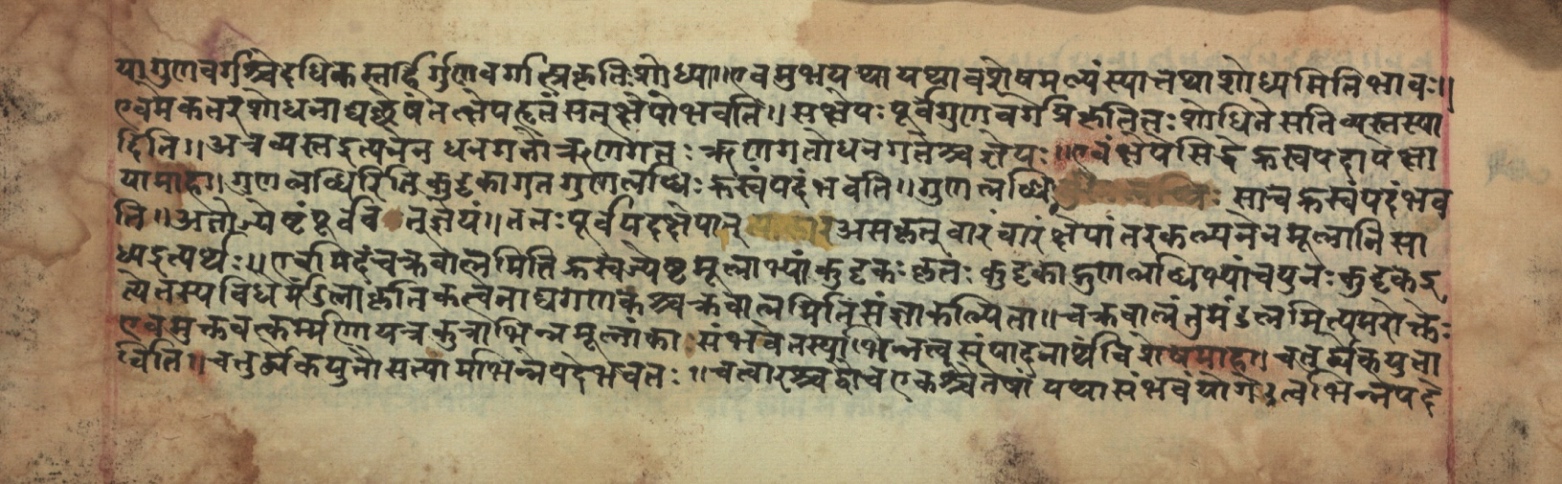 या गुणवर्गश्चेदधिकस्तर्हि र्गुणवर्गात्प्रकृतिः शोध्या ॥ एवमुभयथा यथावशेषमल्पं स्यात्तथा शोध्यमितिभावः ॥
एवमकतरशोधनाद्यछेषं तत्क्षेपहृतं सत् क्षेपोभवति ॥ सक्षेपः पूर्वगुणवर्गे प्रकृतितः शोधिते सति व्यस्तस्या
दिति ॥ अत्र व्यस्त इत्यनेन धनगतौ ऋणगतः ऋणगतो धनगतश्च ज्ञेयः ॥ एवं क्षेपसिद्धे ह्रस्वपदापेक्षा
यामाह ॥ गुणलब्धिरिति कुट्टकागत गुणलब्धिः ह्रस्वं पदं भवति ॥ गुणलब्धि सा च ह्रस्वं पदं भव
ति ॥ अतो ज्येष्टं पूर्वव नुज्ञेयं ॥ ततः पूर्वपदक्षेपान् असकृत् वारं वारं क्षेपांतरकल्पनेन मूलानि सा
ध्यइत्यर्थः ॥ एवमिदं चक्रवालमिति ह्रस्वज्येष्टमूलाभ्यां कुट्टकः कृतः कुट्टकाद्गुणलब्धिभ्यां च पुनः कुट्टकइ
त्येतस्य विधर्मंडलाकृति कत्वनाद्यगणकश्चक्रवालमिति संज्ञा कल्पिता ॥ चक्रवालं तु मंडलमित्यमरोक्तेः
एवमुक्तवत्कर्म्मणि यत्र कुत्राभिन्नमूलाका संभवेत्तस्याभिन्नत्व संपादनार्थं विशेषमाह ॥ चतुर्द्व्येकयुता
विति ॥ चतुर्द्व्येकयुतौ सत्यामभिन्नपदेभवतः ॥ चत्वारश्च द्वौच एकश्च तेषां यथासंभवं योगे त्वभिन्नपदे